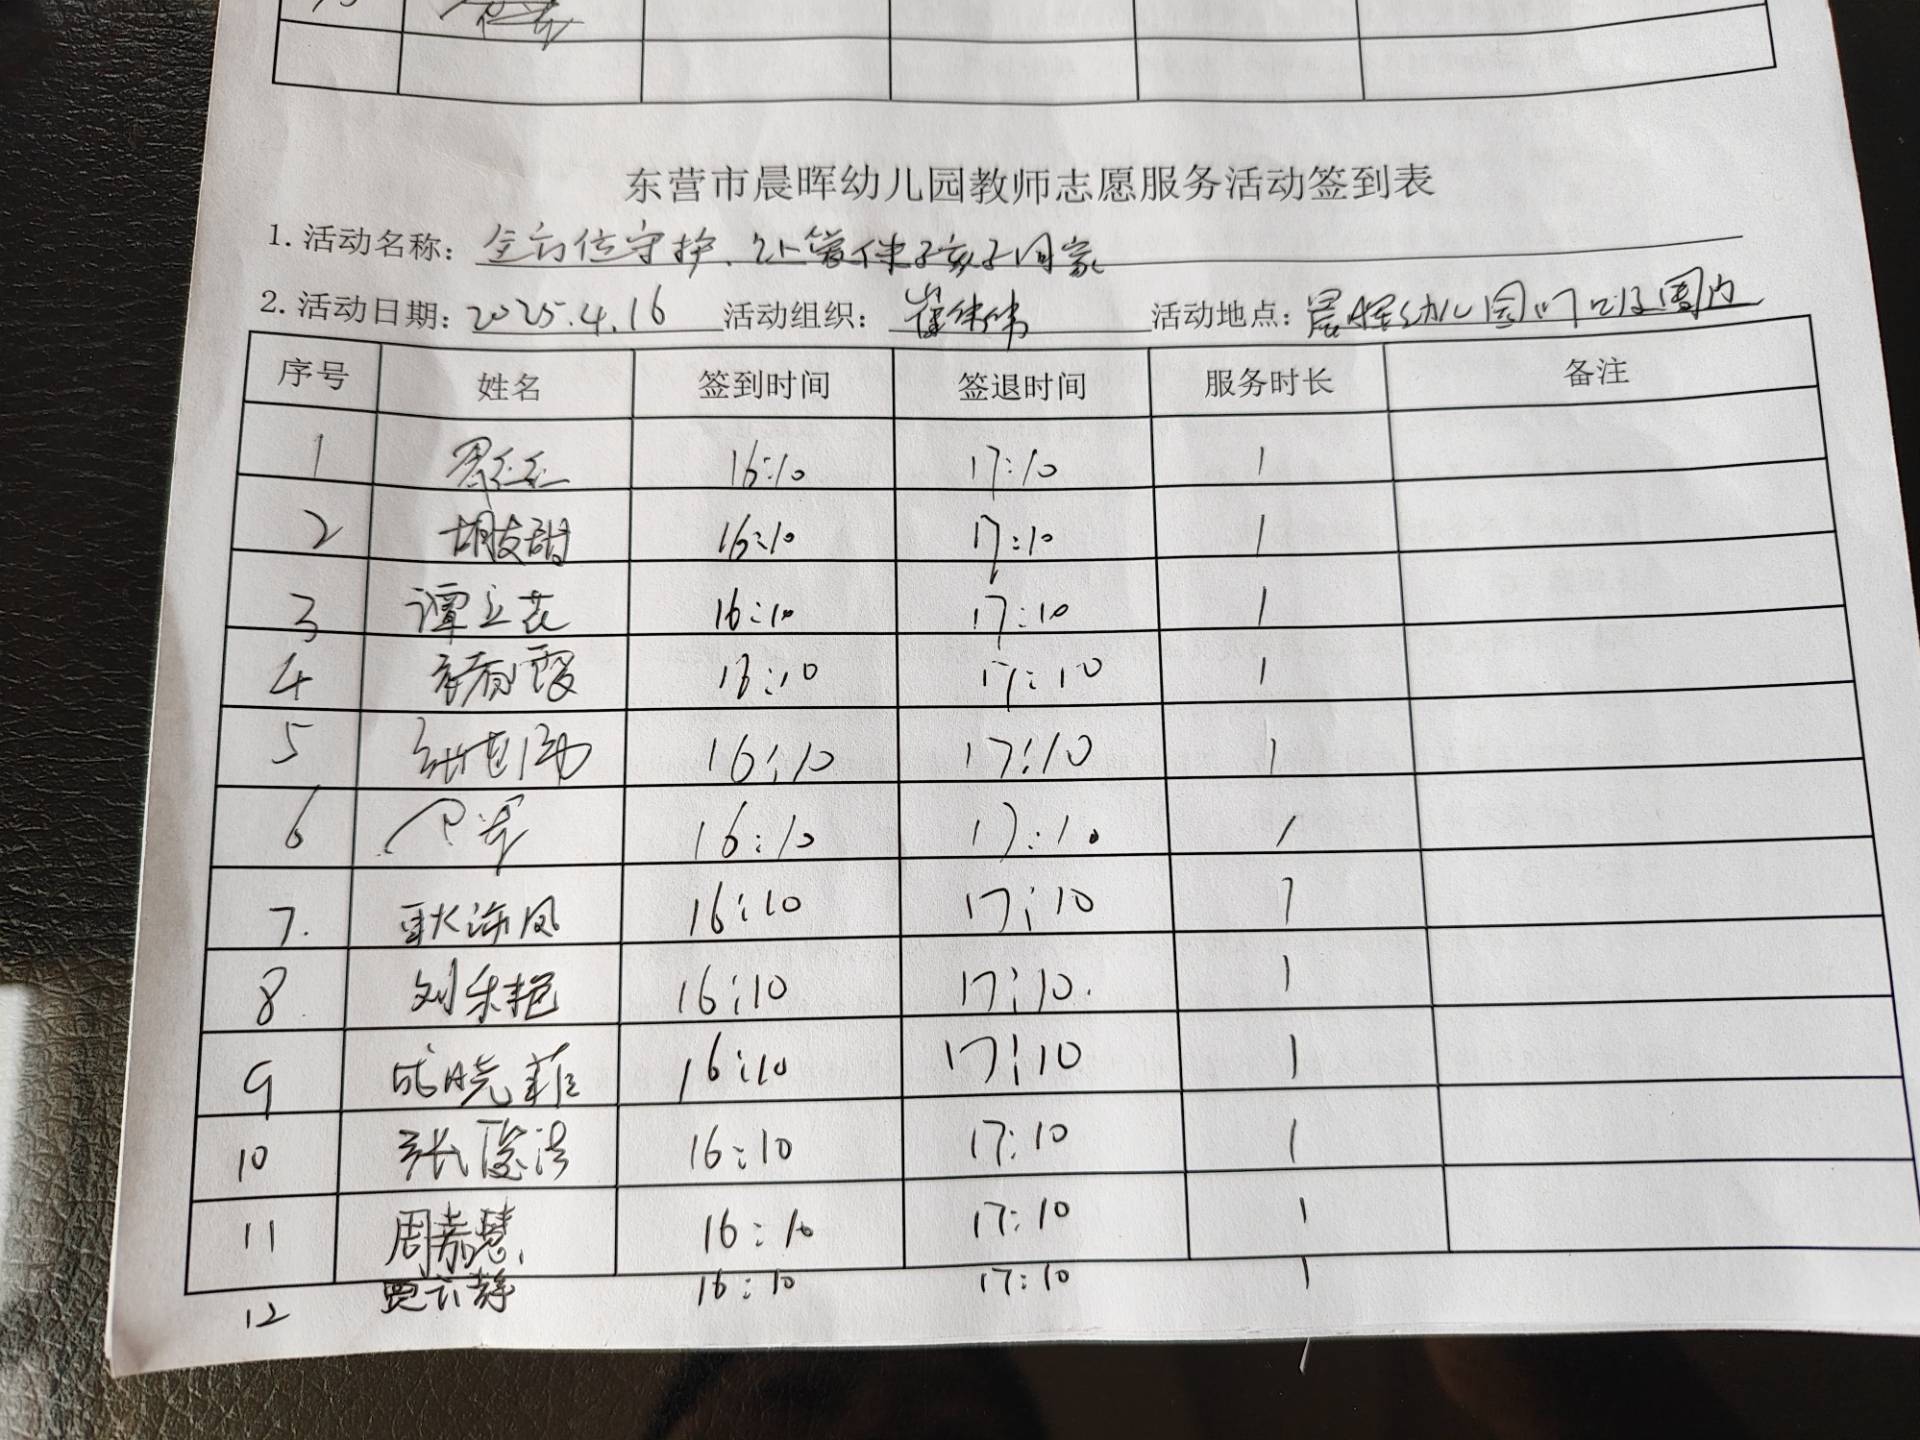 东营市晨晖幼儿园教师志愿服务活动签到表
1. 活动名称: 全方位守护、让爱伴孩子回家
2. 活动日期: 2025.4.16 活动组织: 崔伟伟 活动地点: 晨晖幼儿园门口及周内
序号 姓名 签到时间 签退时间 服务时长 备注
1 16:10 17:10 1
2 16:10 17:10 1
3 谭立花 16:10 17:10 1
4 16:10 17:10 1
5 16:10 17:10 1
6 16:10 17:10 1
7. 耿海凤 16:10 17:10 1
8 刘乐艳 16:10 17:10. 1
9 成晓菲 16:10 17:10 1
10 16:10 17:10 1
11 周嘉慧 16:10 17:10 1
12 贾云静 16:10 17:10 1